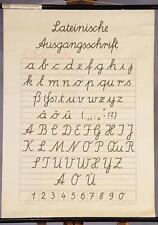 Lateinische
Ausgangsschrift
a b c d e f g h i j
k l m n o p q u r s
ß (ſs) t u v w x y z
ä ö ü (.,;:„"-!?)
A B C D E F G H I J
K L M N O P Qu R
S T U V W X Y Z
Ä Ö Ü
1 2 3 4 5 6 7 8 9 0